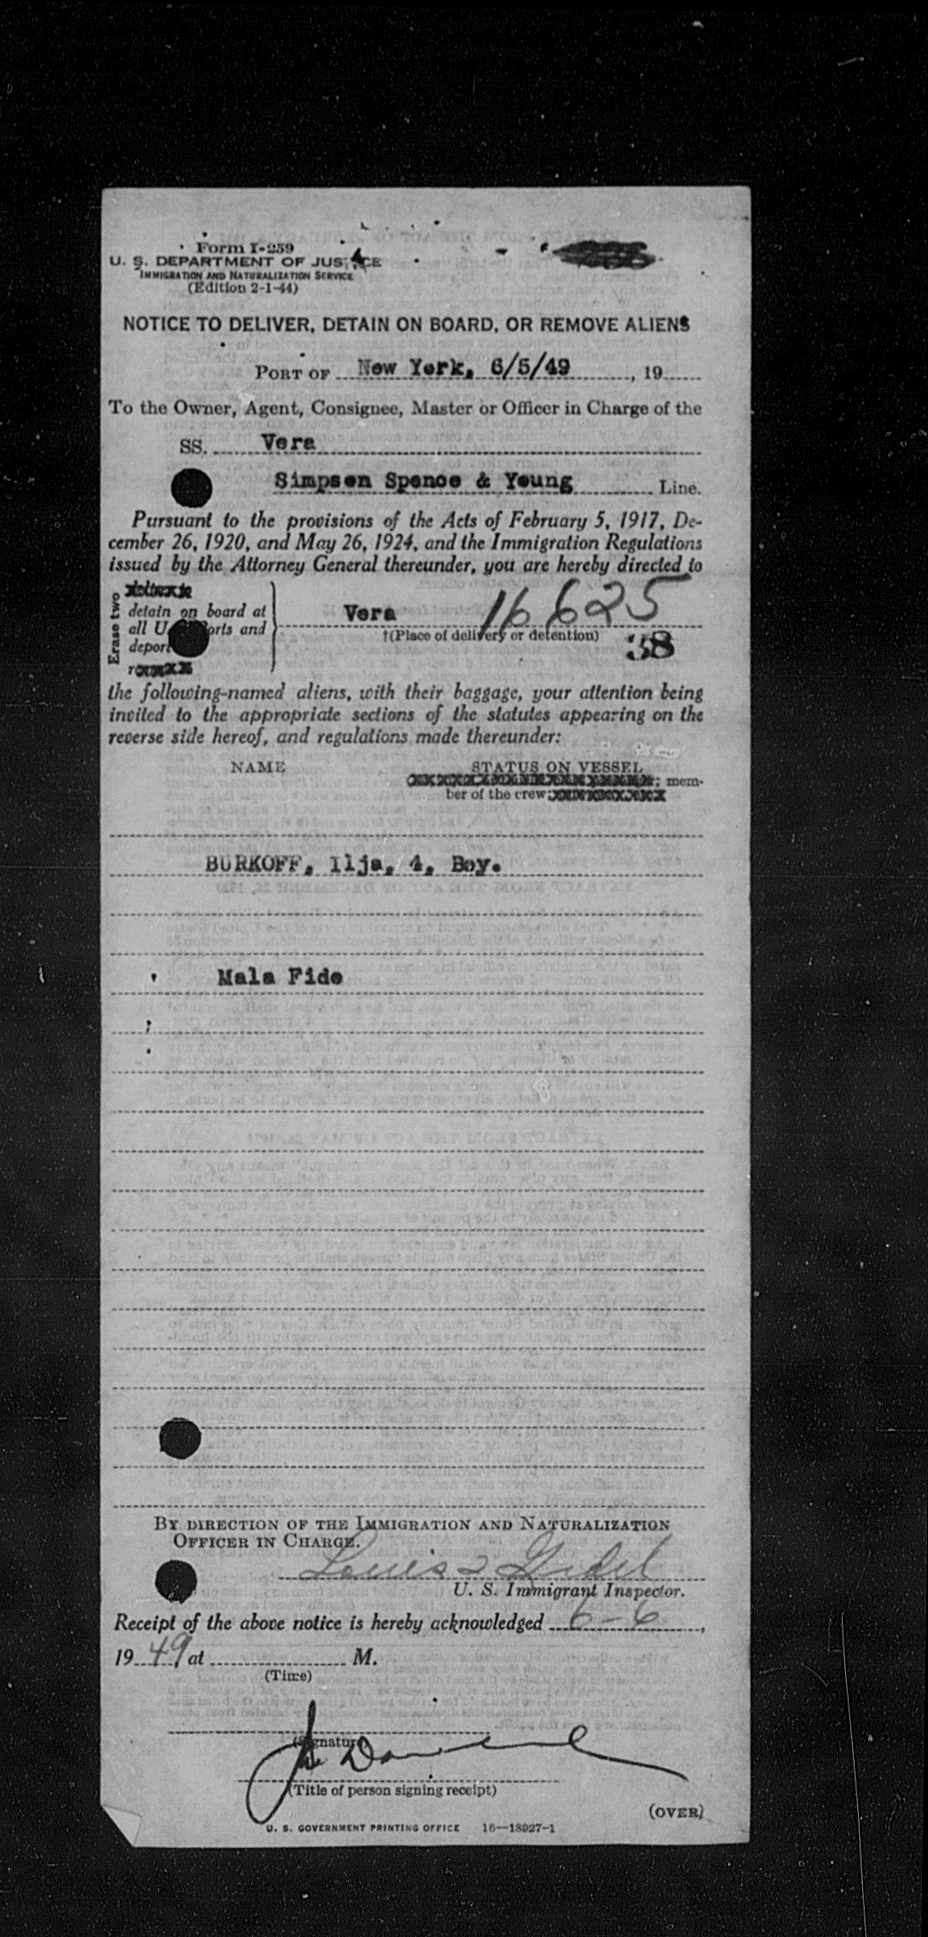 Form I-259
U. S. DEPARTMENT OF JUSTICE
IMMIGRATION AND NATURALIZATION SERVICE
(Edition 2-1-44)
NOTICE TO DELIVER, DETAIN ON BOARD, OR REMOVE ALIENS
PORT OF New York, 6/5/49, 19
To the Owner, Agent, Consignee, Master or Officer in Charge of the
SS. Vera
Simpson Spence & Young Line.
Pursuant to the provisions of the Acts of February 5, 1917, De-
cember 26, 1920, and May 26, 1924, and the Immigration Regulations
issued by the Attorney General thereunder, you are hereby directed to
Erase two
detain on board at
all U. ports and
deport
Vera
16625
†(Place of delivery or detention)
38
the following-named aliens, with their baggage, your attention being
invited to the appropriate sections of the statutes appearing on the
reverse side hereof, and regulations made thereunder:
NAME STATUS ON VESSEL
; mem-
ber of the crew;
BURKOFF, Ilja, 4, Boy.
Mala Fide
BY DIRECTION OF THE IMMIGRATION AND NATURALIZATION
OFFICER IN CHARGE.
Louis
U. S. Immigrant Inspector.
Receipt of the above notice is hereby acknowledged 6-6,
1949 at M.
(Time)
(Signature)
(Title of person signing receipt)
(OVER)
U. S. GOVERNMENT PRINTING OFFICE 16—18927-1